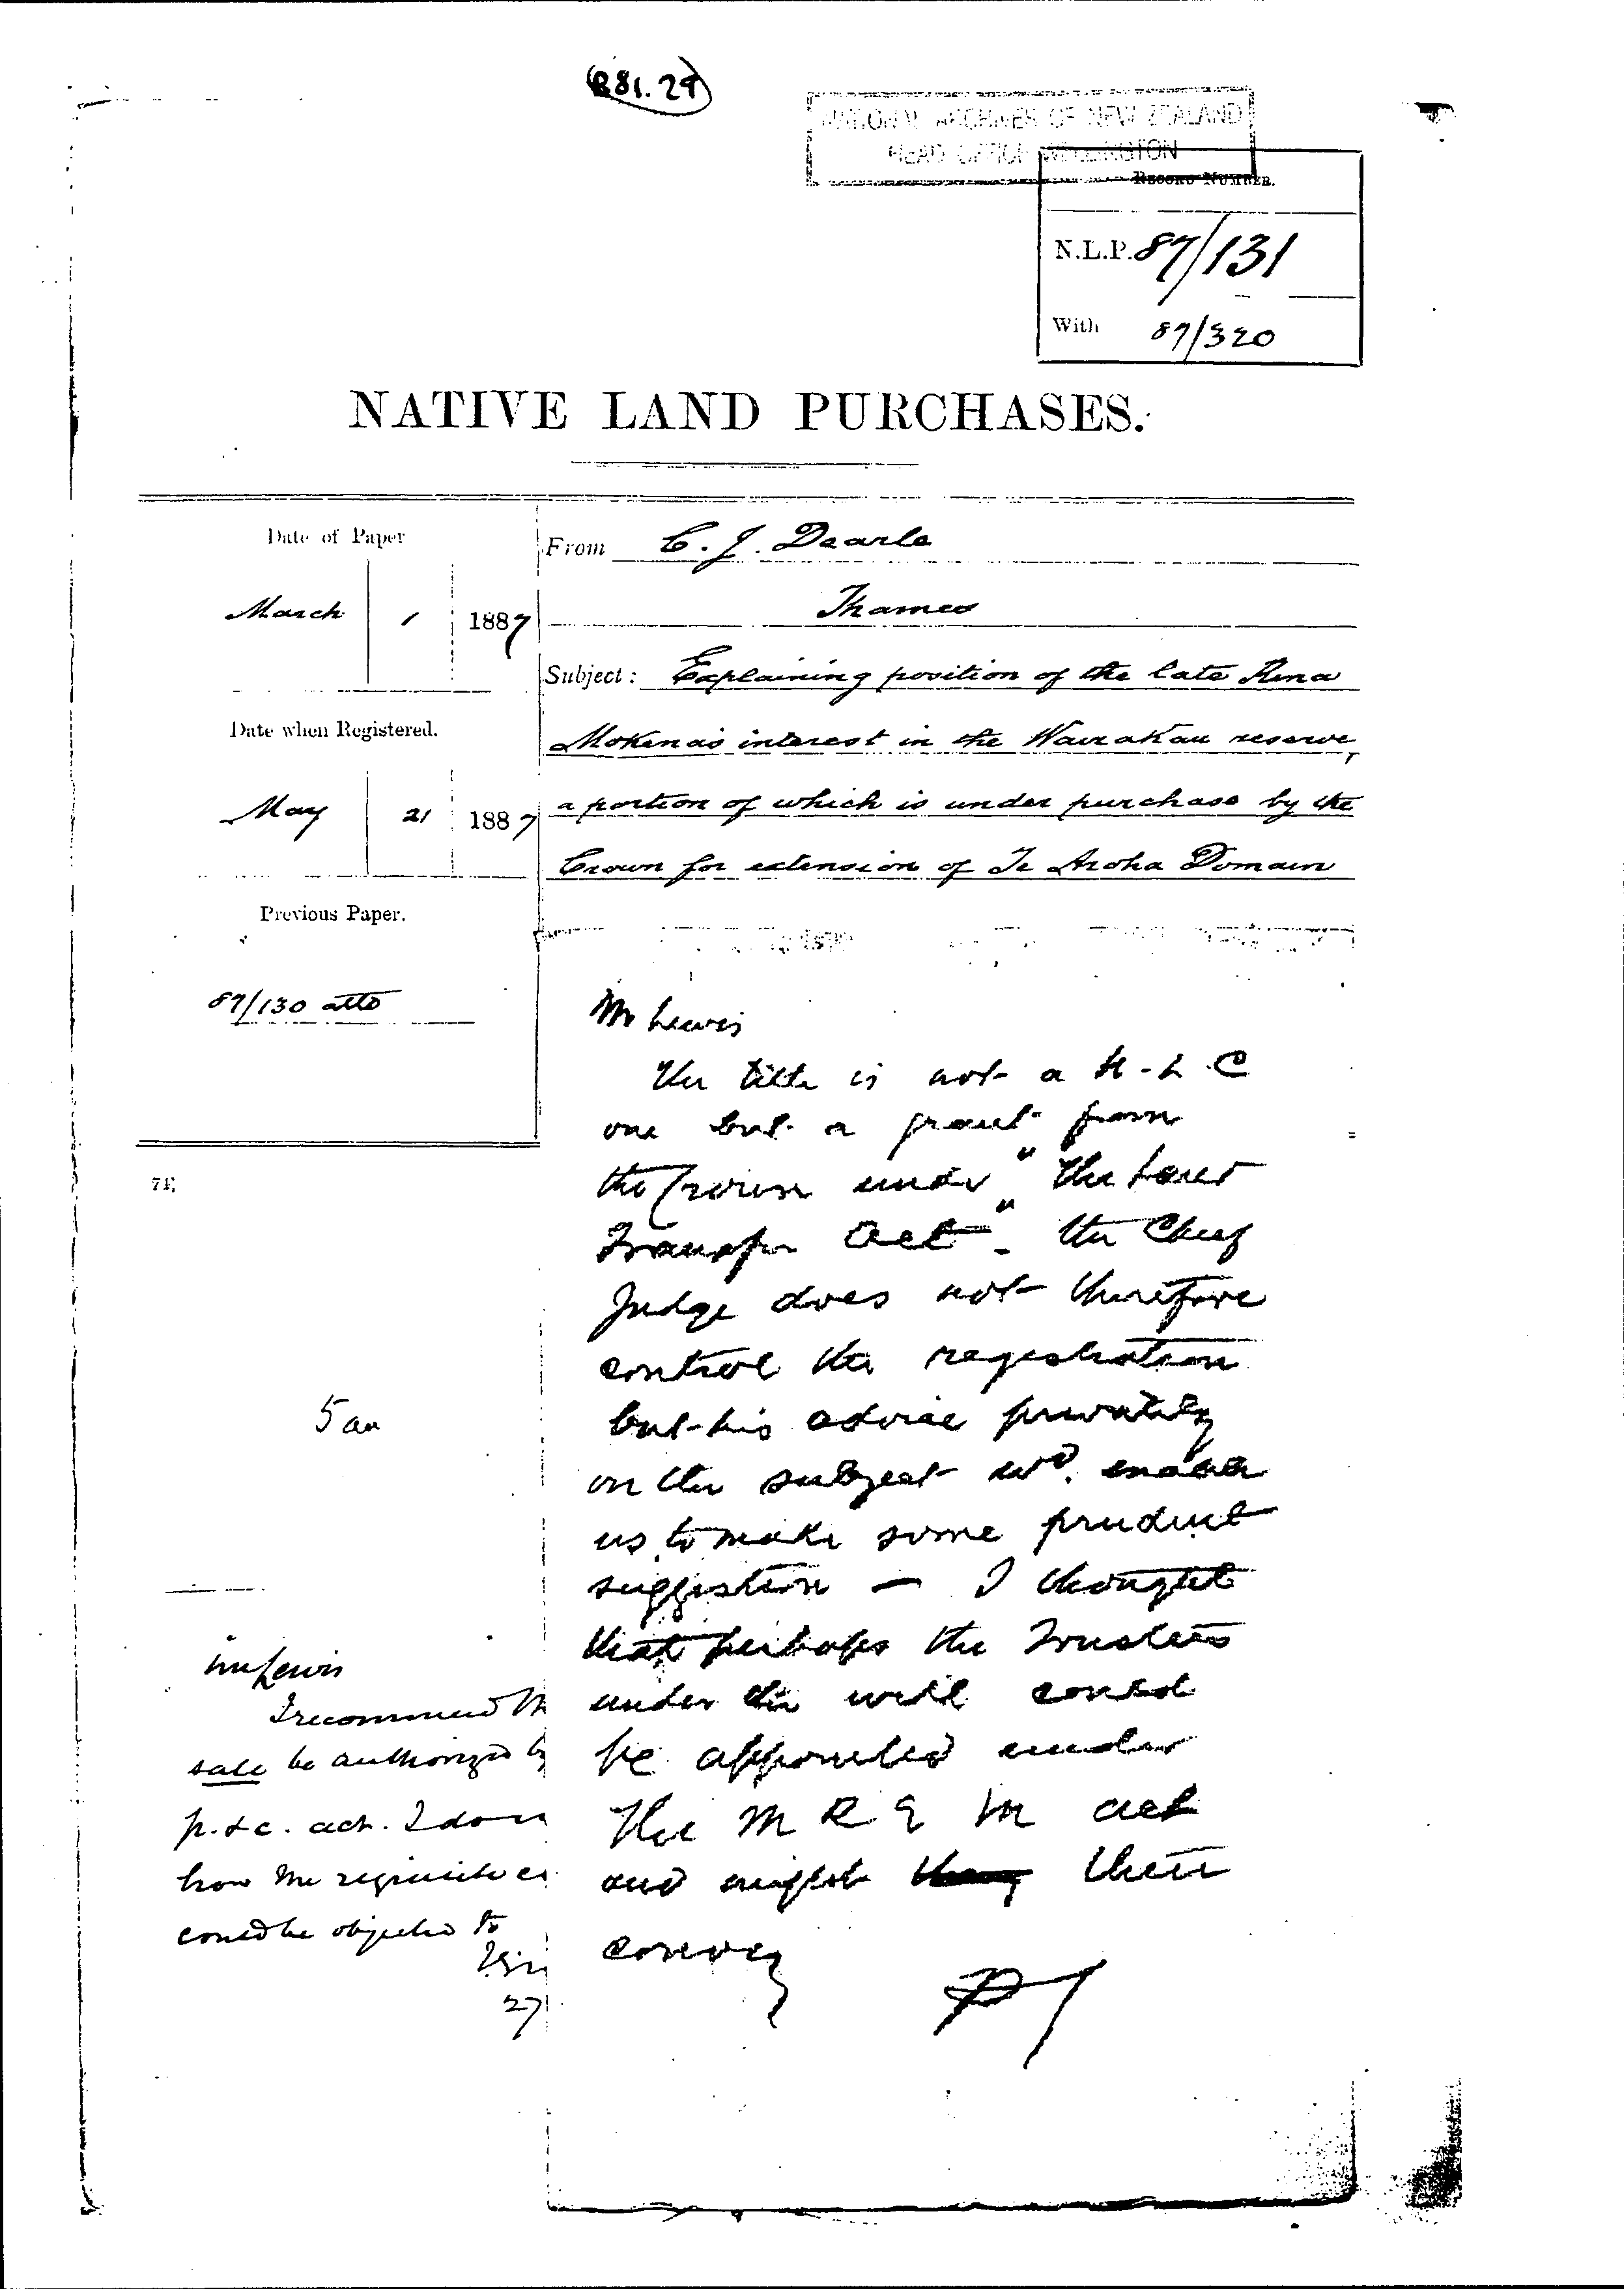 (881.29)
NATIONAL ARCHIVES OF NEW ZEALAND
HEAD OFFICE WELLINGTON
RECORD NUMBER.
N.L.P. 87/131
With 87/320
NATIVE LAND PURCHASES.
Date of Paper
March 1 1887
Date when Registered.
May 21 1887
Previous Paper.
87/130 atto
From C. J. Dearle
Thames
Subject: Explaining position of the late Rina
Mokena's interest in the Wairakau reserve,
a portion of which is under purchase by the
Crown for extension of Te Aroha Domain
Mr Lewis
The title is not a N-L C
one but a grant from
the Crown under "The Land
Transfer Act". The Chief
Judge does not therefore
control the registration
but his advice privately
on the subject wd. enable
us to make some prudent
suggestion — I thought
that perhaps the Trustees
under the will could
be appointed under
The M R E Act
and might then
convey
Mr Lewis
I recommend
sale be authorized
act. I
how the requisite
could be objected to
27